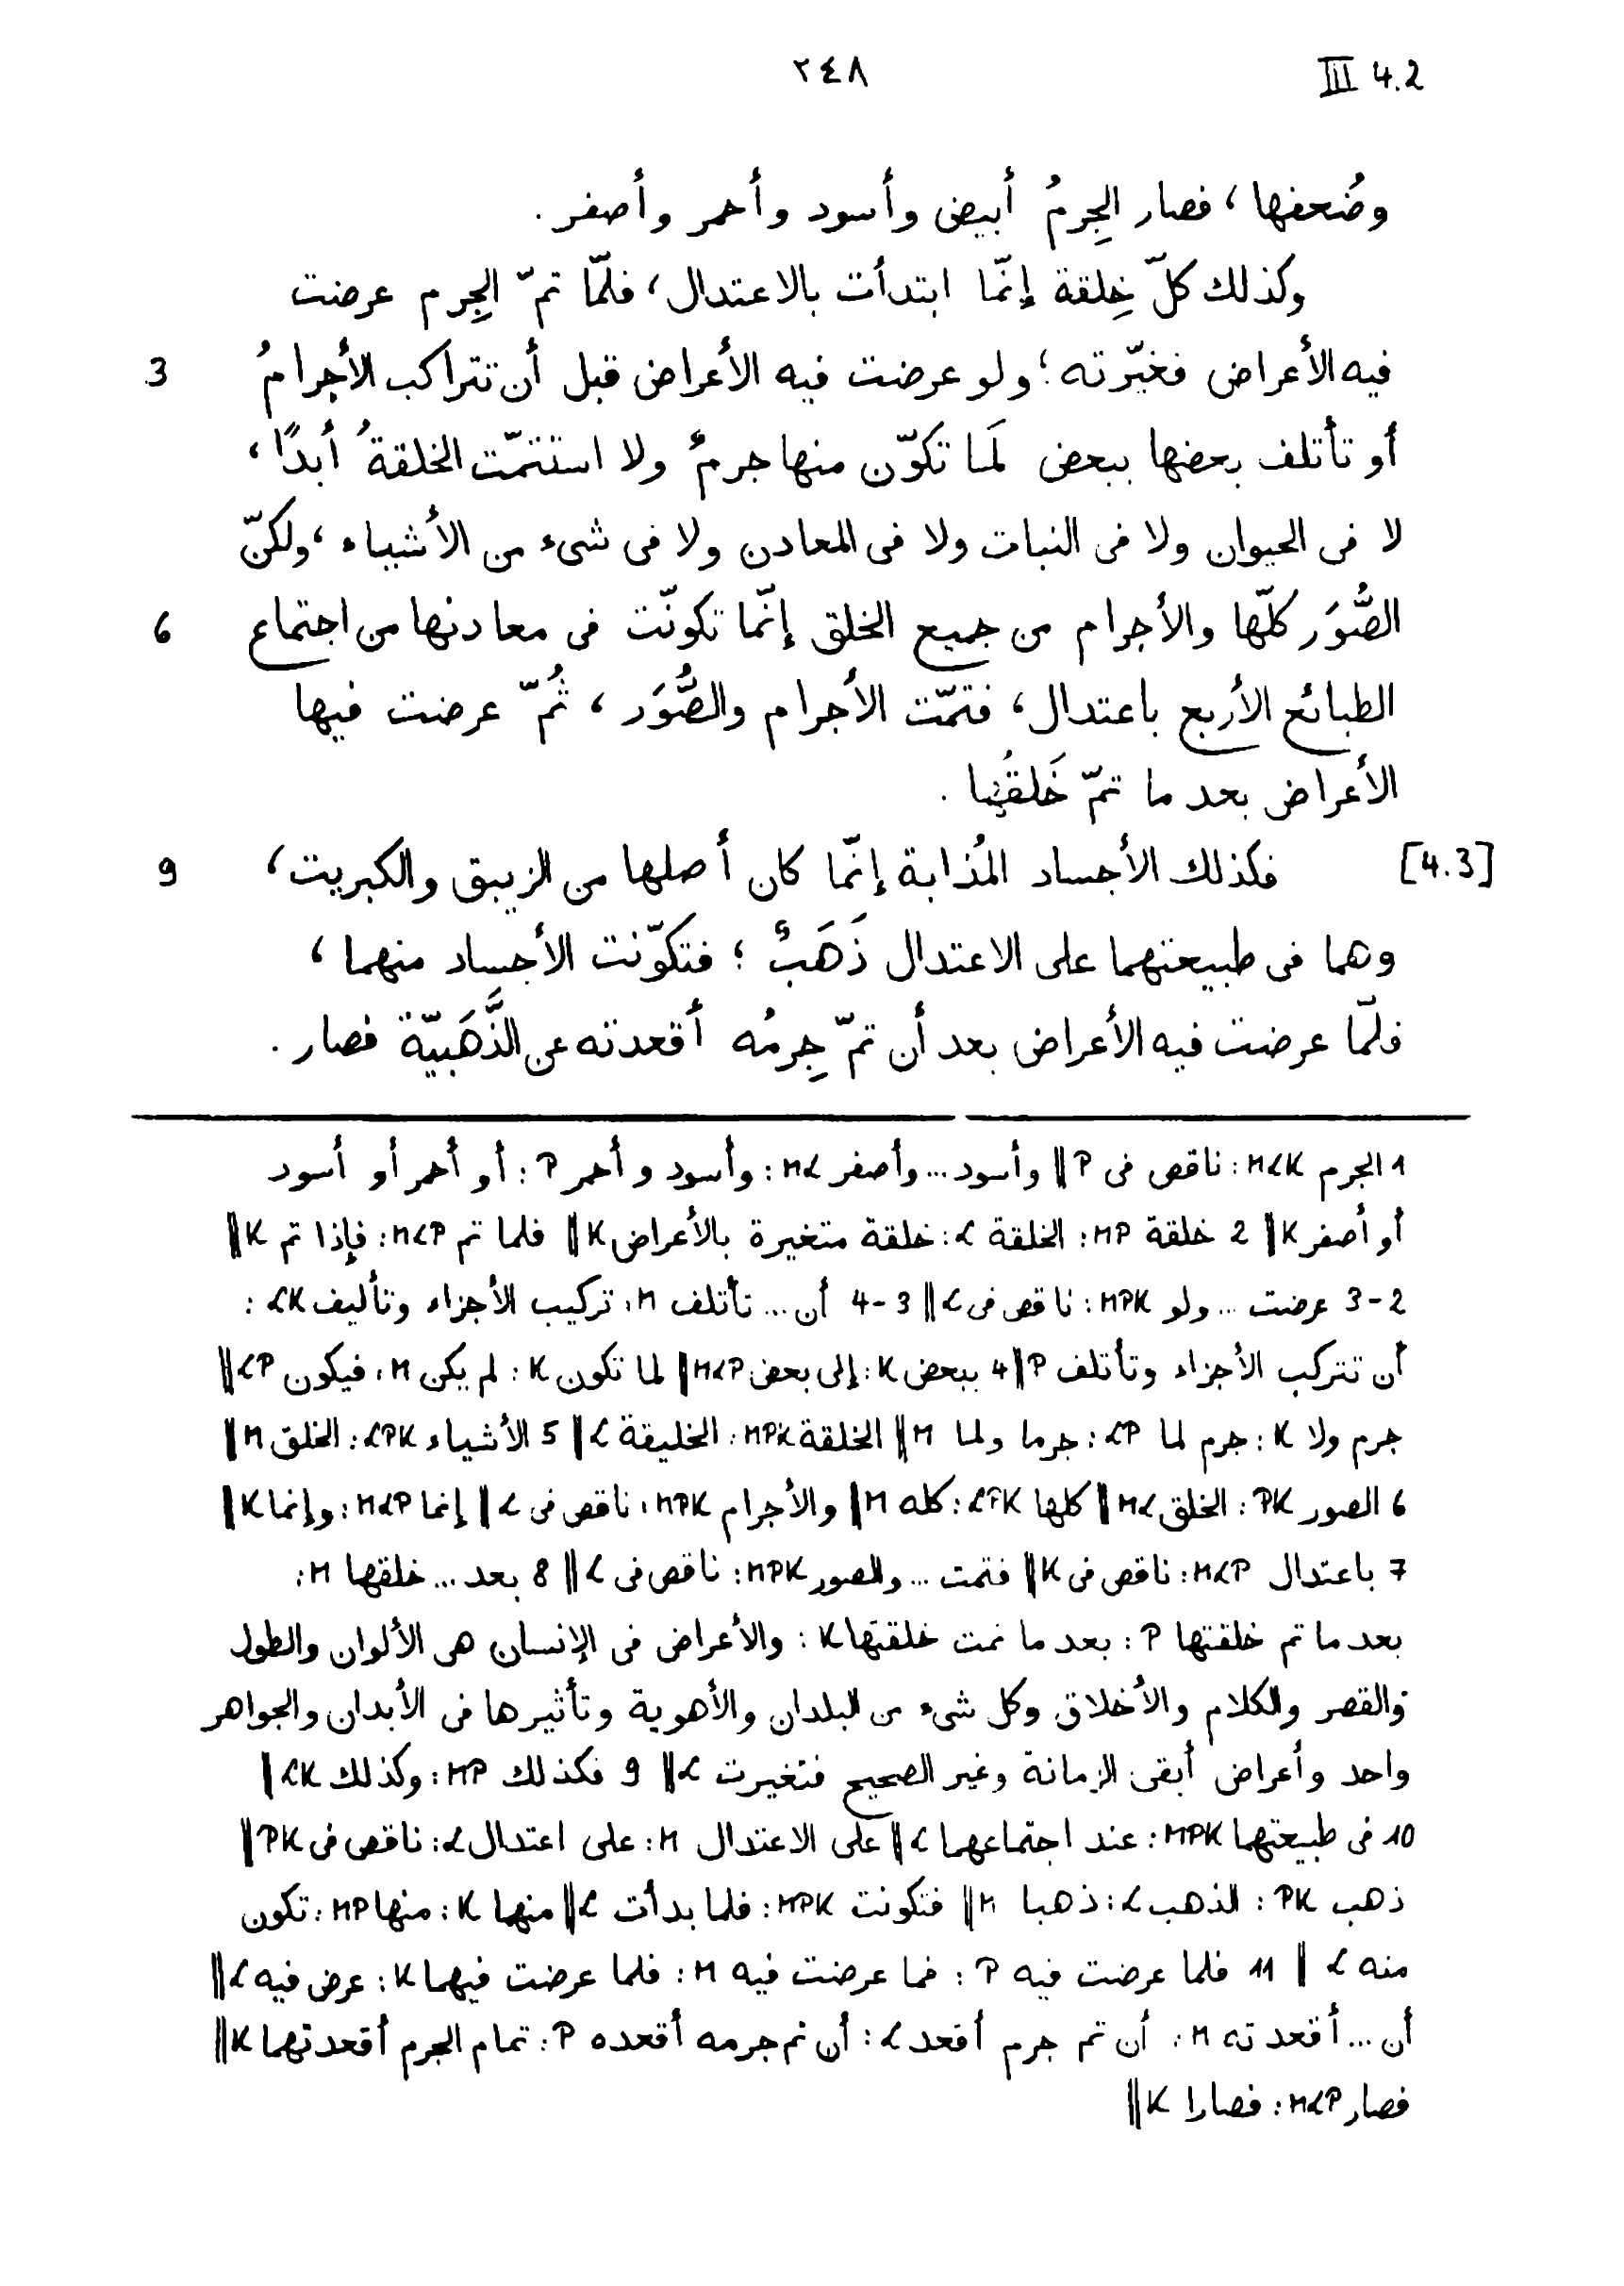 ٢٤٨ III 4.2
وضُعفها، فصار الجِرمُ أبيض وأسود وأحمر وأصفر.
وكذلك كلّ خِلقة إنّما ابتدأت بالاعتدال، فلمّا تمّ الجِرم عرضت
فيه الأعراض فغيّرته؛ ولو عرضت فيه الأعراض قبل أن تتراكب الأجرامُ 3
أو تأتلف بعضها ببعض لَما تكوّن منها جرمٌ ولا استتمّت الخلقةُ أبدًا،
لا فى الحيوان ولا فى النبات ولا فى المعادن ولا فى شىء من الأشياء، ولكنّ
الصُّوَر كلّها والأجرام من جميع الخلق إنّما تكونّت فى معادنها من اجتماع 6
الطبائع الأربع باعتدال، فتمّت الأجرام والصُّوَر، ثُمّ عرضت فيها
الأعراض بعد ما تمّ خَلقُها.
[4.3] فكذلك الأجساد المُذابة إنّما كان أصلها من الزيبق والكبريت، 9
وهما فى طبيعتهما على الاعتدال ذَهَبٌ؛ فتكوّنت الأجساد منهما،
فلمّا عرضت فيه الأعراض بعد أن تمّ جِرمُه أقعدته عن الذَّهَبيّة فصار.
1 الجرم MLK: ناقص فى P || وأسود... وأصفر ML: وأسود وأحمر P: أو أحمر أو أسود
أو أصفر K || 2 خلقة MP: الخلقة L: خلقة متغيرة بالأعراض K || فلما تم MLP: فإذا تم K ||
2-3 عرضت ... ولو MPK: ناقص فى L || 3-4 أن... تأتلف M: تركيب الأجزاء وتأليف LK:
أن تتركب الأجزاء وتأتلف P || 4 ببعض K: إلى بعض MLP || لما تكون K: لم يكن M: فيكون LP ||
جرم ولا K: جرم لما LP: جرما ولما M || الخلقة MPK: الخليقة L || 5 الأشياء LPK: الخلق M ||
6 الصور PK: الخلق ML || كلها LPK: كله M || والأجرام MPK: ناقص فى L || إنما MLP: وإنما K ||
7 باعتدال MLP: ناقص فى K || فتمت ... والصور MPK: ناقص فى L || 8 بعد ... خلقها M:
بعد ما تم خلقتها P: بعد ما تمت خلقتها K: والأعراض فى الإنسان هى الألوان والطول
والقصر والكلام والأخلاق وكل شىء من البلدان والأهوية وتأثيرها فى الأبدان والجواهر
واحد وأعراض أبقى الزمانة وغير الصحيح فتغيرت L || 9 فكذلك MP: وكذلك LK ||
10 فى طبيعتهما MPK: عند اجتماعهما L || على الاعتدال M: على اعتدال L: ناقص فى PK ||
ذهب PK: الذهب L: ذهبا M || فتكونت MPK: فلما بدأت L || منهما K: منها MP: تكون
منه L || 11 فلما عرضت فيه P: فما عرضت فيه M: فلما عرضت فيهما K: عرض فيه L ||
أن ... أقعدته M: أن تم جرم أقعد L: أن تم جرمه أقعده P: تمام الجرم أقعدتهما K ||
فصار MLP: فصارا K ||